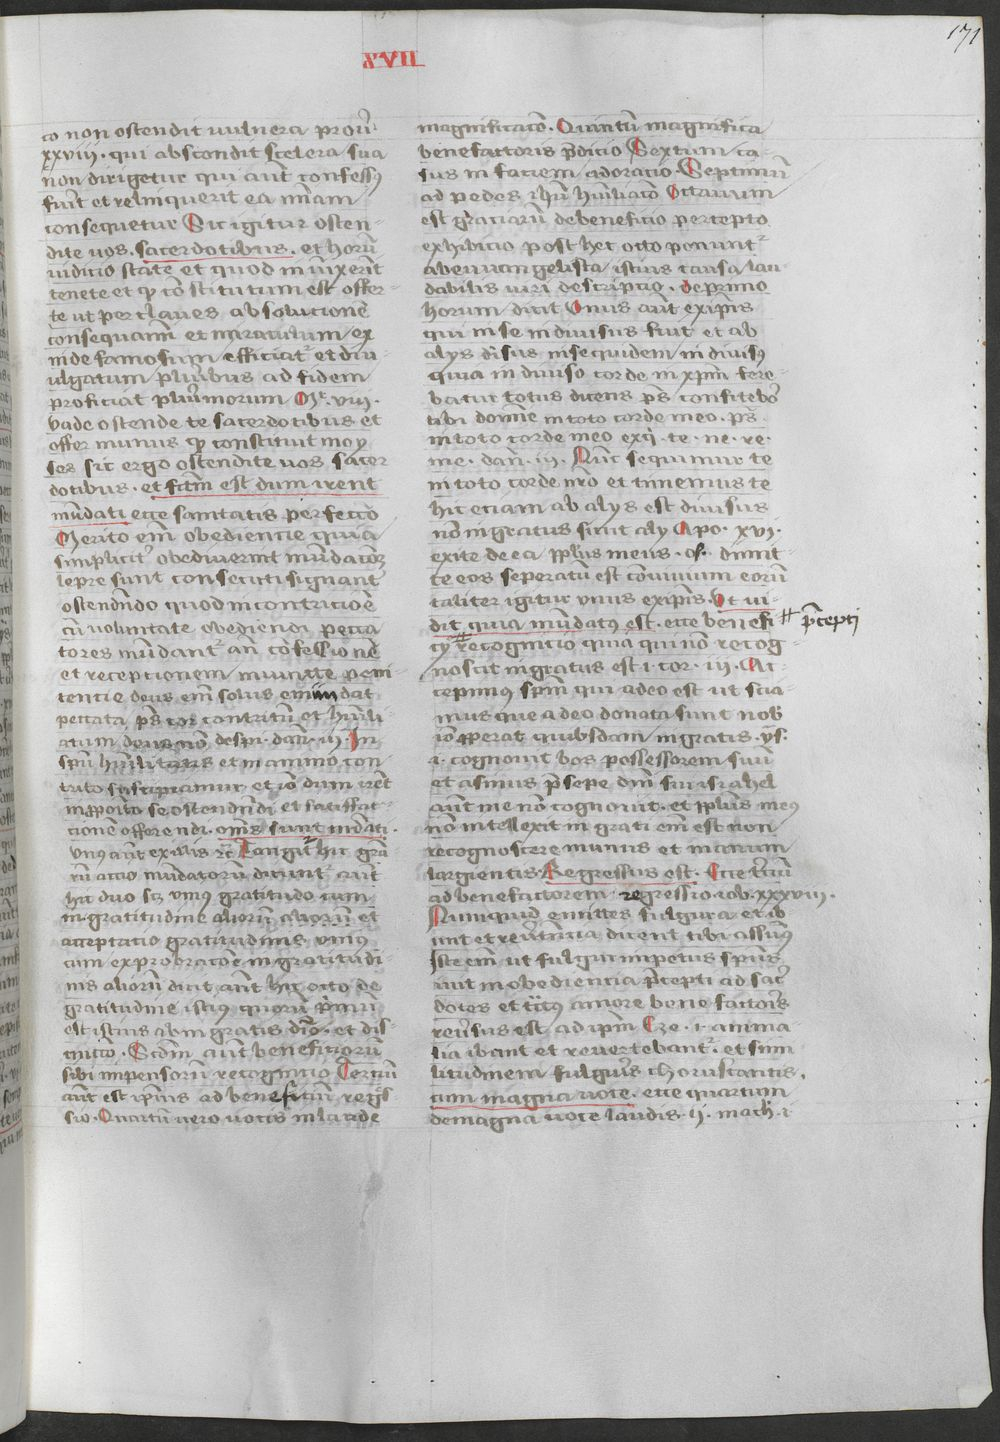 171
XVII
co non ostendit vulnera prouͬ
xxviii · qui abscondit scelera sua
non dirigetur qui aut̄ confessꝰ
fuīt et relinquerit ea m̄iam
consequetur Sic igitur osten-
dite uos · sacerdotibus · et horū
iudicio state et quod iniūxerīt
tenete et qͩ cōstitutum est offer-
te ut per claues absolucionē
consequam̄i et miraculum ex
inde famosum efficiatͬ et diu-
ulgatum pluribus ad fidem
proficiat pluͬmorum Mͭ · viii ·
vade ostende te sacerdotibus et
offer munus qͩ constituit moy
ses sic ergo ostendite uos sacer
dotibus · et fc̄m est dum irent
mūdati ecce sanitatis perfectio
Merito em̄ obediencie quia
simpliciter̓ obedivernt mūdacōꝫ
lepre sunt consecuti signant̓
ostendēdo quod in contricioē
cū voluntate obediendi pecca
tores mūdantͬ an̄ cōfessionē
et recepcionem iniuncte peni
tencie deus em̄ solus emundat
peccata p̄s cor contritū et hūili
atum deus nō despi · dān · iii · In
spū hūilitatis et in animo con
trito suscipiamur et iō dum irēt
in p̄posito se ostendēdi et satisfac-
tionē offerendi · om̄s sunt mūdati ·
Vnꝰ aut̄ ex illis ⁊c̄ Tangitͬ hic gr̄a
rū actio mūdatorū dicunt̓ aut̄
hic duo scꝫ vniꝰ gratitudo cum
ingratitudine aliorū aliorū et
acceptatio gratitudinis vniꝰ
cum exprobracōe ingratitudi-
nis aliorū dicit aut̄ hic octo de
gratitudine istiꝰ quorū p̓mū
est istius ab ingratis diō · et dis-
tinctio · Scd̄m aut̄ beneficiorū
sibi impensorū recognitio Tercīū
aut̄ est ip̄ius ad beneficiū regͬs
sio · Quartū uero uocis in laude
magnificacō · Quintū magnifica
benefactoris p̄dicio Sextum ca-
sus in faciem adoracio · Septimū
ad pedes ih̄u hūiliacō Octauum
est graciarū de beneficio percepto
exhibicio post hec octo ponuntͬ
ab euuangelista istius causa lau-
dabilis uiri descriptio · De primo
horum dicit Vnus aut̄ ex ip̄is
qui in se indiuisus fuit et ab
alys diuīsus in se quidem indiuisꝰ
quia indiuiso corde in xp̄m fere-
batur totus dicens p̄s confitebor̓
tibi domīe in toto corde meo · p̄s
in toto corde meo exqͥ · te · ne · re ·
me · dan̄ · iii · Nūc sequimur te
in toto corde nr̄o et timemus te
hic eciam ab alys est diuisus
nō ingratus sicut aly Apo · xvi ·
exite de ea ppl̄us meus · os · dimit-
te eos seperatū est cōuiuium eorū
taliter igitur vnus ex ip̄is · Vt ui-
dit quia mūdatꝰ est · ecce benefi
⌗ p̄cepti
cy ⌗ recognicio quia qui nō recog
noscit ingratus est · i · cor · iii · Ac-
cepimꝰ spm̄ qui a deo est ut scia-
mus que a deo donata sunt nob̄
iō pperat quibusdam ingratis · ys ·
i · cognouit bos possessorem suū
et asinus p̄sepe dn̄i sui israhel
aut̄ me nō cognouit · et ppl̄us meꝰ
nō intellexit ingrati em̄ est non
recognoscere munus et mirum
largientis · Regressus est · Ecce t̓ciū
ad benefactorem regressio · iob · xxxviii ·
Numquid emittes fulgura et ib
unt et reūtencia dicent tibi assumꝰ
Iste em̄ ut fulgur impetus spūs
iuit in obediencia p̄cepti ad sac̓
dotes et ic̓tus amore bene factoris
reūsus est ad ip̄m Eze · i · anima-
lia ibant et revertebantͬ · et simi
litudinem fulguris choruscantis ·
cum magna uoce · ecce quartum
de magna uoce laudis · ii · mach̓ · i